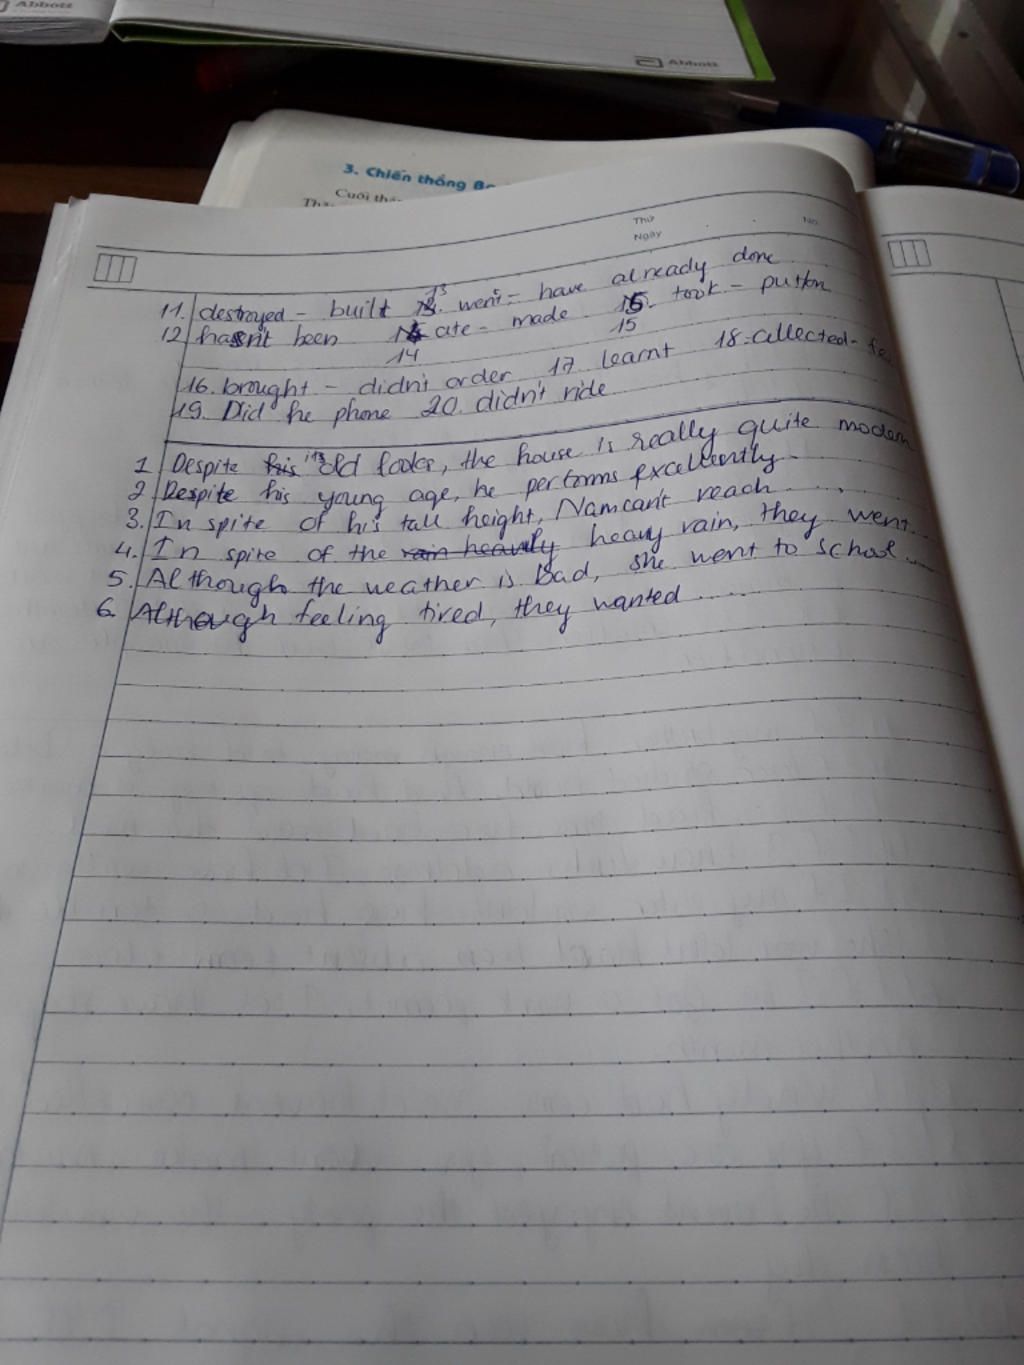 Abbott
Abbott
3. Chiến thắng
Cuối
Thứ
Ngày
No.
11. destroyed - built 13. went - have already done
12 hasn't been 14 ate - made 15. took - put on
16. brought - didn't order 17 learnt 18. collected -
19. Did he phone 20. didn't ride
1 Despite old , the house is really quite modern
2 Despite his young age, he performs excellently.
3. In spite of his tall height, Nam can't reach .....
4. In spite of the rain heavily heavy rain, they went
5. Although the weather is bad, she went to school ...
6. Although feeling tired, they wanted .......